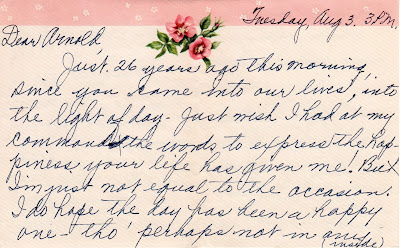 Tuesday, Aug 3. 3 P.M.
Dear Arnold,
Just 26 years ago this morning,
since you came into our lives, into
the light of day - Just wish I had at my
command the words to express the hap-
piness your life has given me! But
I'm just not equal to the occasion.
I do hope the day has been a happy
one - tho' perhaps not in
(inside)